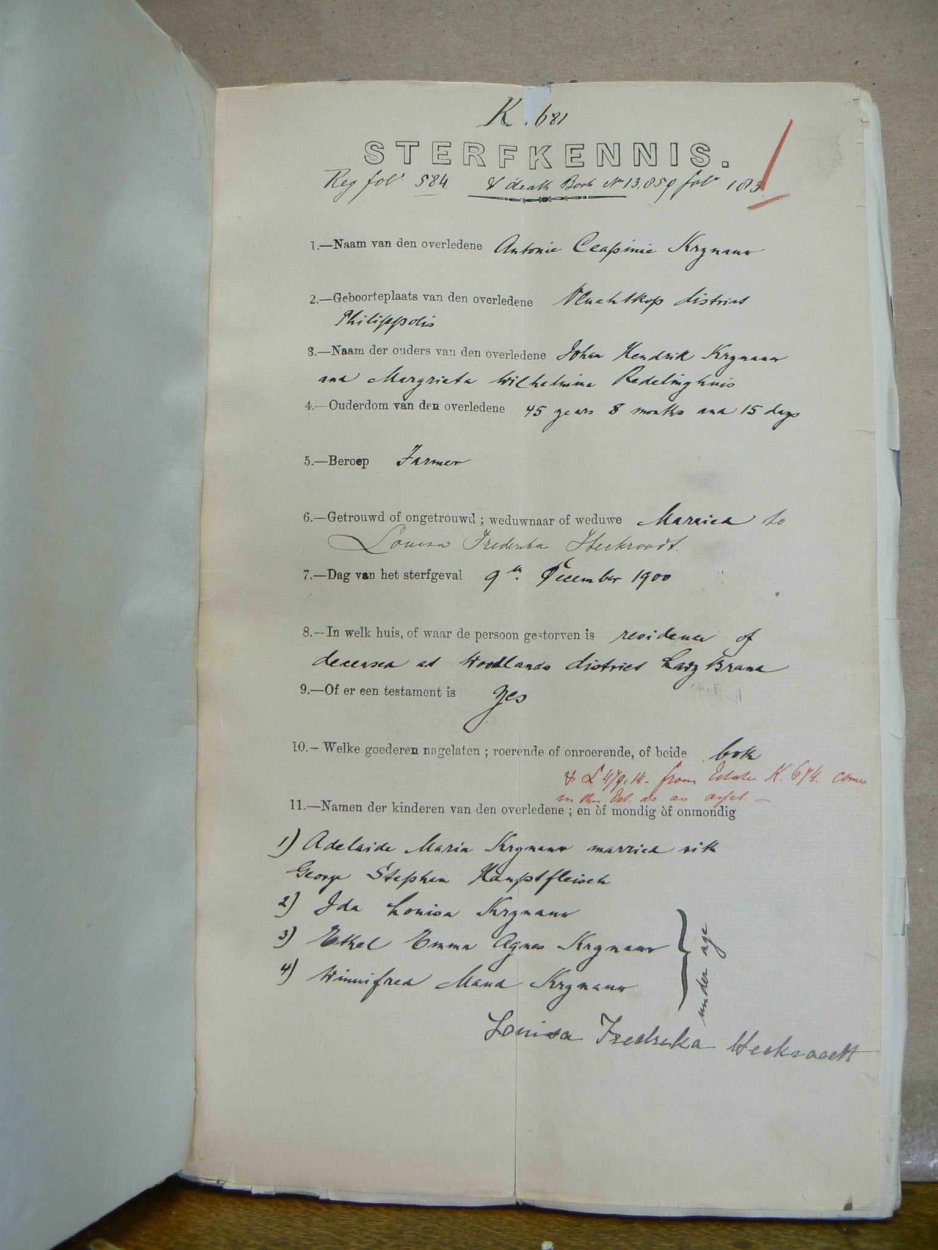 K. 681
STERFKENNIS.
Reg folº 584 & death Book Nº 13.859 folº 183
1.—Naam van den overledene Antonie Krynauw
2.—Geboorteplaats van den overledene Vluchtkop district
Philippolis
3.—Naam der ouders van den overledene Johan Hendrik Krynauw
and Margrieta Wilhelmina Redelinghuis
4.—Ouderdom van den overledene 45 years 8 months and 15 days
5.—Beroep Farmer
6.—Getrouwd of ongetrouwd ; weduwnaar of weduwe Married to
Louisa Frederika Heckroodt
7.—Dag van het sterfgeval 9th December 1900
8.—In welk huis, of waar de persoon gestorven is residence of
deceased at Woodlands district Ladybrand
9.—Of er een testament is yes
10.—Welke goederen nagelaten ; roerende of onroerende, of beide both
& £ from Estate K. 674 comes
in this Est. as an asset —
11.—Namen der kinderen van den overledene ; en òf mondig òf onmondig
1) Adelaide Maria Krynauw married with
George Stephen Hauptfleisch
2) Ida Louisa Krynauw
3) Ethel Emma Agnes Krynauw
4) Winnifred Maud Krynauw
under age
Louisa Fredrika Heckroodt